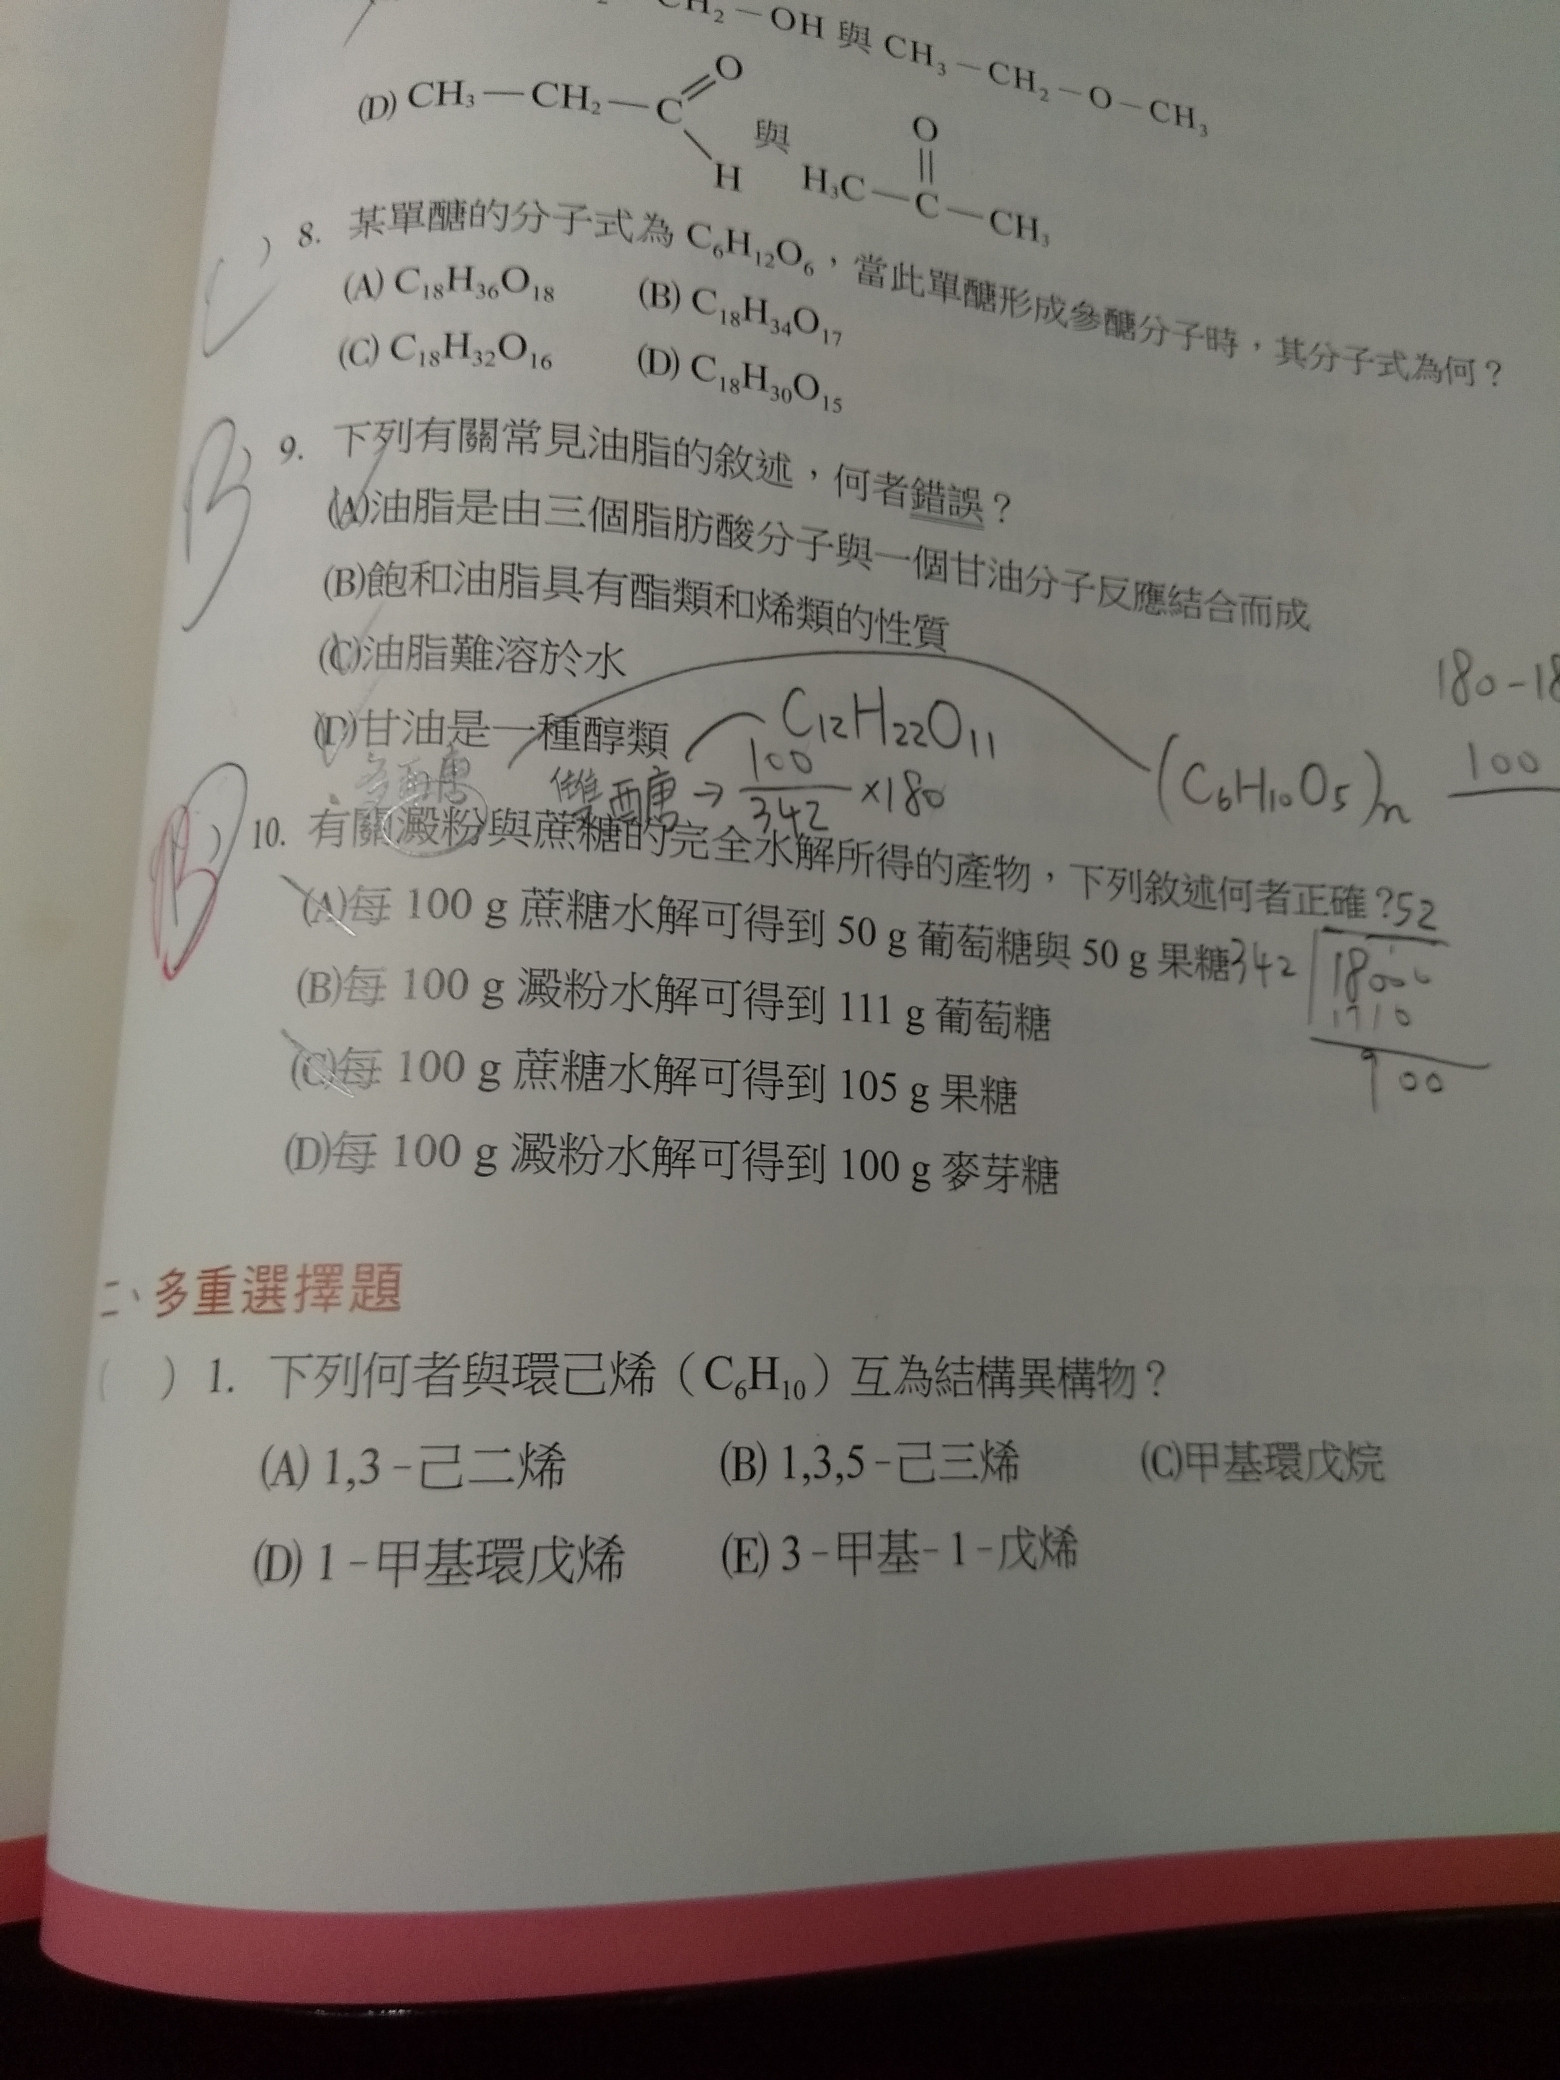 CH₂－OH 與 CH₃－CH₂－O－CH₃
O
(D) CH₃－CH₂－C
H
與
O
H₃C－C－CH₃
C ) 8. 某單醣的分子式為 C₆H₁₂O₆，當此單醣形成參醣分子時，其分子式為何？
(A) C₁₈H₃₆O₁₈ (B) C₁₈H₃₄O₁₇
(C) C₁₈H₃₂O₁₆ (D) C₁₈H₃₀O₁₅
B ) 9. 下列有關常見油脂的敘述，何者錯誤？
(A)油脂是由三個脂肪酸分子與一個甘油分子反應結合而成
(B)飽和油脂具有酯類和烯類的性質
(C)油脂難溶於水
(D)甘油是一種醇類
C₁₂H₂₂O₁₁
180-18
多醣
雙醣→ 100/342 ×180
(C₆H₁₀O₅)n
100
B ) 10. 有關澱粉與蔗糖的完全水解所得的產物，下列敘述何者正確？
52
(A)每 100 g 蔗糖水解可得到 50 g 葡萄糖與 50 g 果糖
342 18000
1710
900
(B)每 100 g 澱粉水解可得到 111 g 葡萄糖
(C)每 100 g 蔗糖水解可得到 105 g 果糖
(D)每 100 g 澱粉水解可得到 100 g 麥芽糖
二、多重選擇題
( ) 1. 下列何者與環己烯（C₆H₁₀）互為結構異構物？
(A) 1,3-己二烯 (B) 1,3,5-己三烯 (C)甲基環戊烷
(D) 1-甲基環戊烯 (E) 3-甲基-1-戊烯